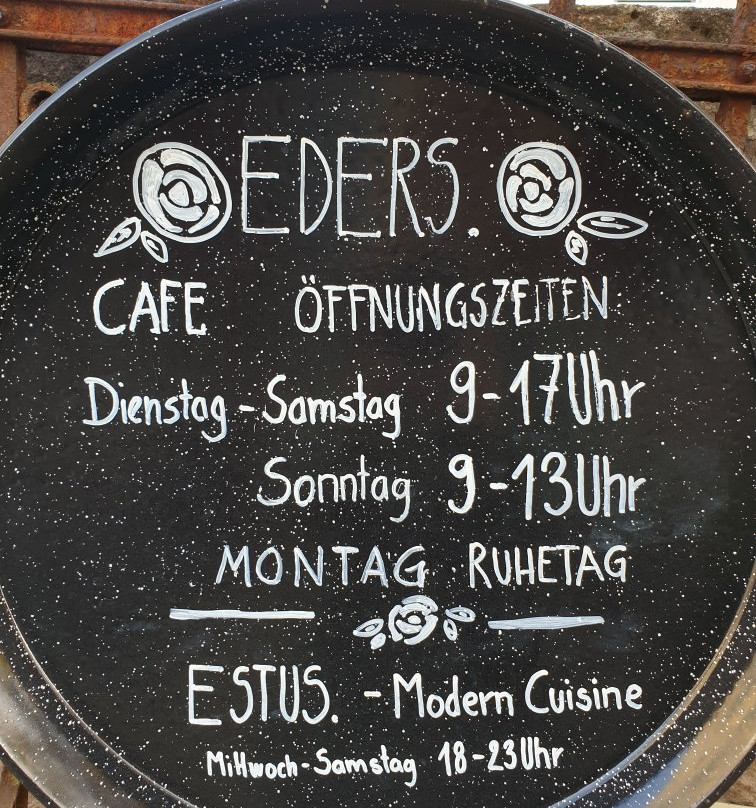 EDERS.
CAFE ÖFFNUNGSZEITEN:
Dienstag - Samstag 9-17Uhr
Sonntag 9-13Uhr
MONTAG RUHETAG
ESTUS. - Modern Cuisine
Mittwoch-Samstag 18-23Uhr